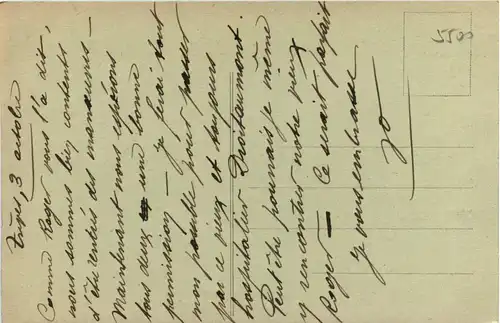 3 octobre
Comme Roger vous l'a dit,
nous sommes bien contents
d'être rentrés des manœuvres —
Maintenant nous espérons
tous deux une bonne
permission — je ferai tout
mon possible pour passer
par ce vieux et toujours
hospitalier
Peut-être pourrais-je même
y rencontrer notre vieux
Roger — Ce serait parfait
Je vous embrasse
Jo
5500